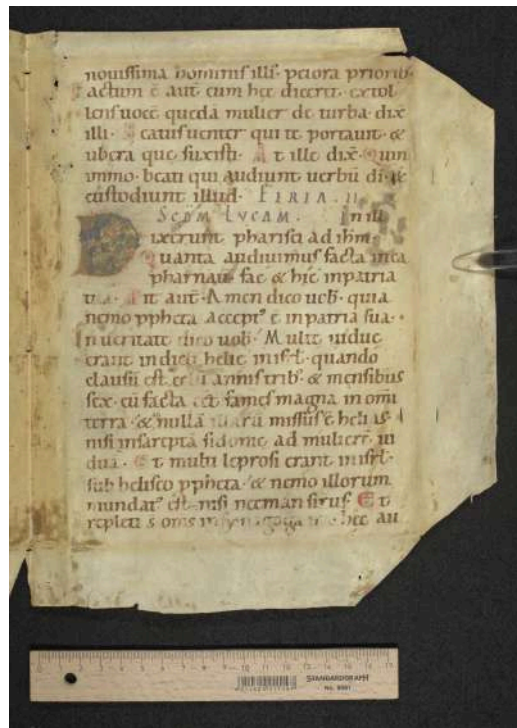 nouissima hominis illi᷒· peiora priorib᷒·
actum ē aut cum hec diceret· extol
lens uocē quedā mulier de turba· dix̄
illi· Beatus uenter qui te portauit· &
ubera que suxisti· At ille dix̄· Quin
immo· beati qui audiunt uerbū di· &
custodiunt illud· FERIA · II ·
SCDM LVCAM. In ill
Dixerunt pharisei ad ihm·
Quanta audiuimus facta in ca
pharnau· fac & hic in patria
tua· Ait aut· Amen dico uob· quia
nemo ppheta accept᷒ ē in patria sua·
In ueritate dico uob· Multe uidue
erant in dieb helie in isrl· quando
clausū est celū annis trib᷒· & mensibus
sex· cū facta eēt fames magna in omi
terra· & nullā illarū missus ē helias·
nisi in sarepta sidonie ad mulierē ui
duā· Et multi leprosi erant in isrl·
sub heliseo ppheta· & nemo illorum
mundat᷒ est nisi neeman sirus· Et
repleti s̄ oms in synagoga ira hec au
STANDARDGRAPH
No. 8981